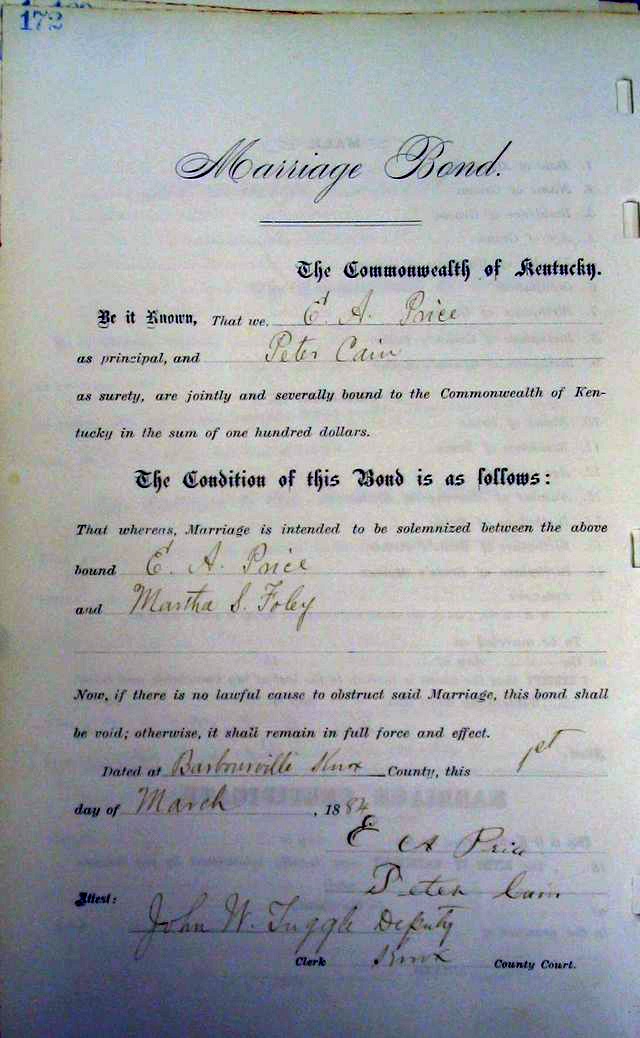 172
Marriage Bond.
The Commonwealth of Kentucky.
Be it Known, That we, Ed A. Price
as principal, and Peter Cain
as surety, are jointly and severally bound to the Commonwealth of Ken-
tucky in the sum of one hundred dollars.
The Condition of this Bond is as follows:
That whereas, Marriage is intended to be solemnized between the above
bound Ed A. Price
and Martha S. Foley
Now, if there is no lawful cause to obstruct said Marriage, this bond shall
be void; otherwise, it shall remain in full force and effect.
Dated at Barbourville Knox County, this 1st
day of March, 1884
E A Price
Peter Cain
Attest:
John W. Tuggle Deputy
Clerk Knox County Court.